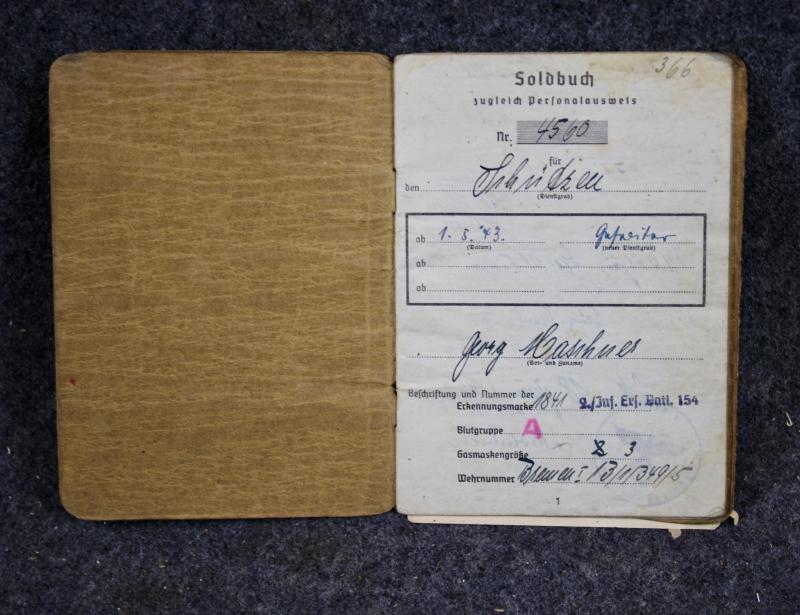 366
Soldbuch
zugleich Personalausweis
Nr. 4560
für
den Schützen
(Dienstgrad)
ab 1. 5. 43. Gefreiter
(Datum) (neuer Dienstgrad)
ab
ab
Georg Maschner
(Vor- und Zuname)
Beschriftung und Nummer der
Erkennungsmarke 1841 2./Inf. Ers. Batl. 154
Blutgruppe A
Gasmaskengröße 3
Wehrnummer Bremen I 13/1/349/5
1